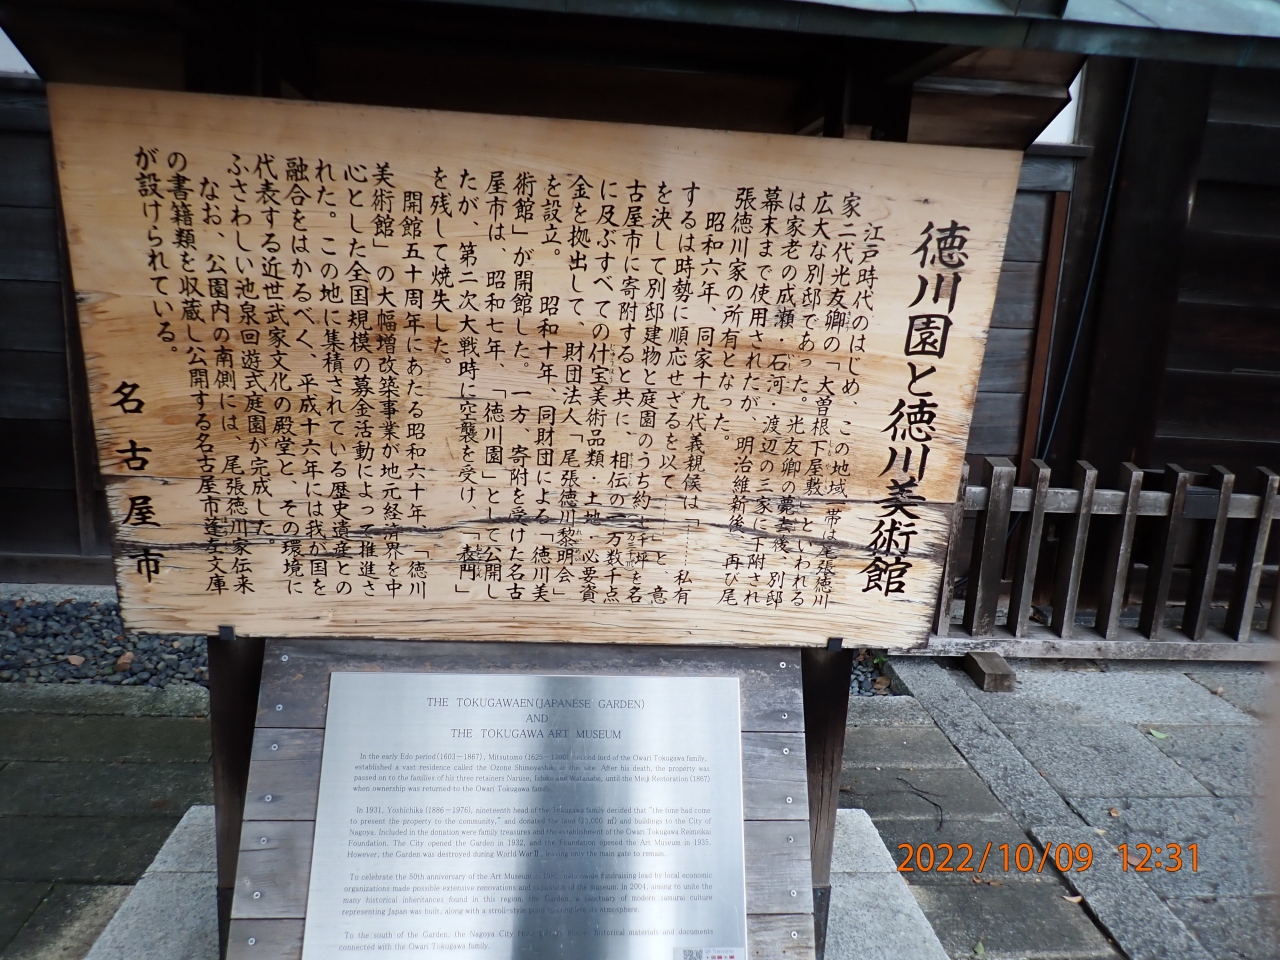 徳川園と徳川美術館
江戸時代のはじめ、この地域一帯は尾張徳川
家二代光友卿の「大曽根下屋敷」といわれる
広大な別邸であった。光友卿の薨去後、別邸
は家老の成瀬・石河・渡辺の三家に下附され
幕末まで使用されたが、明治維新後、再び尾
張徳川家の所有となった。
昭和六年、同家十九代義親候は「……私有
するは時勢に順応せざるを以て……」と意
を決して別邸建物と庭園のうち約七千坪を名
古屋市に寄附すると共に、相伝の一万数千点
に及ぶすべての什宝美術品類・土地・必要資
金を拠出して、財団法人「尾張徳川黎明会」
を設立。昭和十年、同財団による「徳川美
術館」が開館した。一方、寄附を受けた名古
屋市は、昭和七年、「徳川園」として公開し
たが、第二次大戦時に空襲を受け、「表門」
を残して焼失した。
開館五十周年にあたる昭和六十年、「徳川
美術館」の大幅増改築事業が地元経済界を中
心とした全国規模の募金活動によって推進さ
れた。この地に集積されている歴史遺産との
融合をはかるべく、平成十六年には我が国を
代表する近世武家文化の殿堂と、その環境に
ふさわしい池泉回遊式庭園が完成した。
なお、公園内の南側には、尾張徳川家伝来
の書籍類を収蔵し公開する名古屋市蓬左文庫
が設けられている。
名古屋市
THE TOKUGAWAEN(JAPANESE GARDEN)
AND
THE TOKUGAWA ART MUSEUM
In the early Edo period(1603−1867), Mitsutomo (1625−1700) second lord of the Owari Tokugawa family,
established a vast residence called the Ozone Shimoyashiki at this site. After his death, the property was
passed on to the families of his three retainers Naruse, Ishiko and Watanabe, until the Meiji Restoration (1867)
when ownership was returned to the Owari Tokugawa family.
In 1931, Yoshichika (1886−1976), nineteenth head of the Tokugawa family decided that "the time had come
to present the property to the community," and donated the land (23,000 ㎡) and buildings to the City of
Nagoya. Included in the donation were family treasures and the establishment of the Owari Tokugawa Reimeikai
Foundation. The City opened the Garden in 1932, and the Foundation opened the Art Museum in 1935.
However, the Garden was destroyed during World War II, leaving only the main gate to remain.
To celebrate the 50th anniversary of the Art Museum in 1985, nationwide fundraising lead by local economic
organizations made possible extensive renovations and expansion of the museum. In 2004, aiming to unite the
many historical inheritances found in this region, the Garden, a sanctuary of modern samurai culture
representing Japan was built, along with a stroll-style pond to complete its atmosphere.
To the south of the Garden, the Nagoya City historical materials and documents
connected with the Owari Tokugawa family.
2022/10/09 12:31